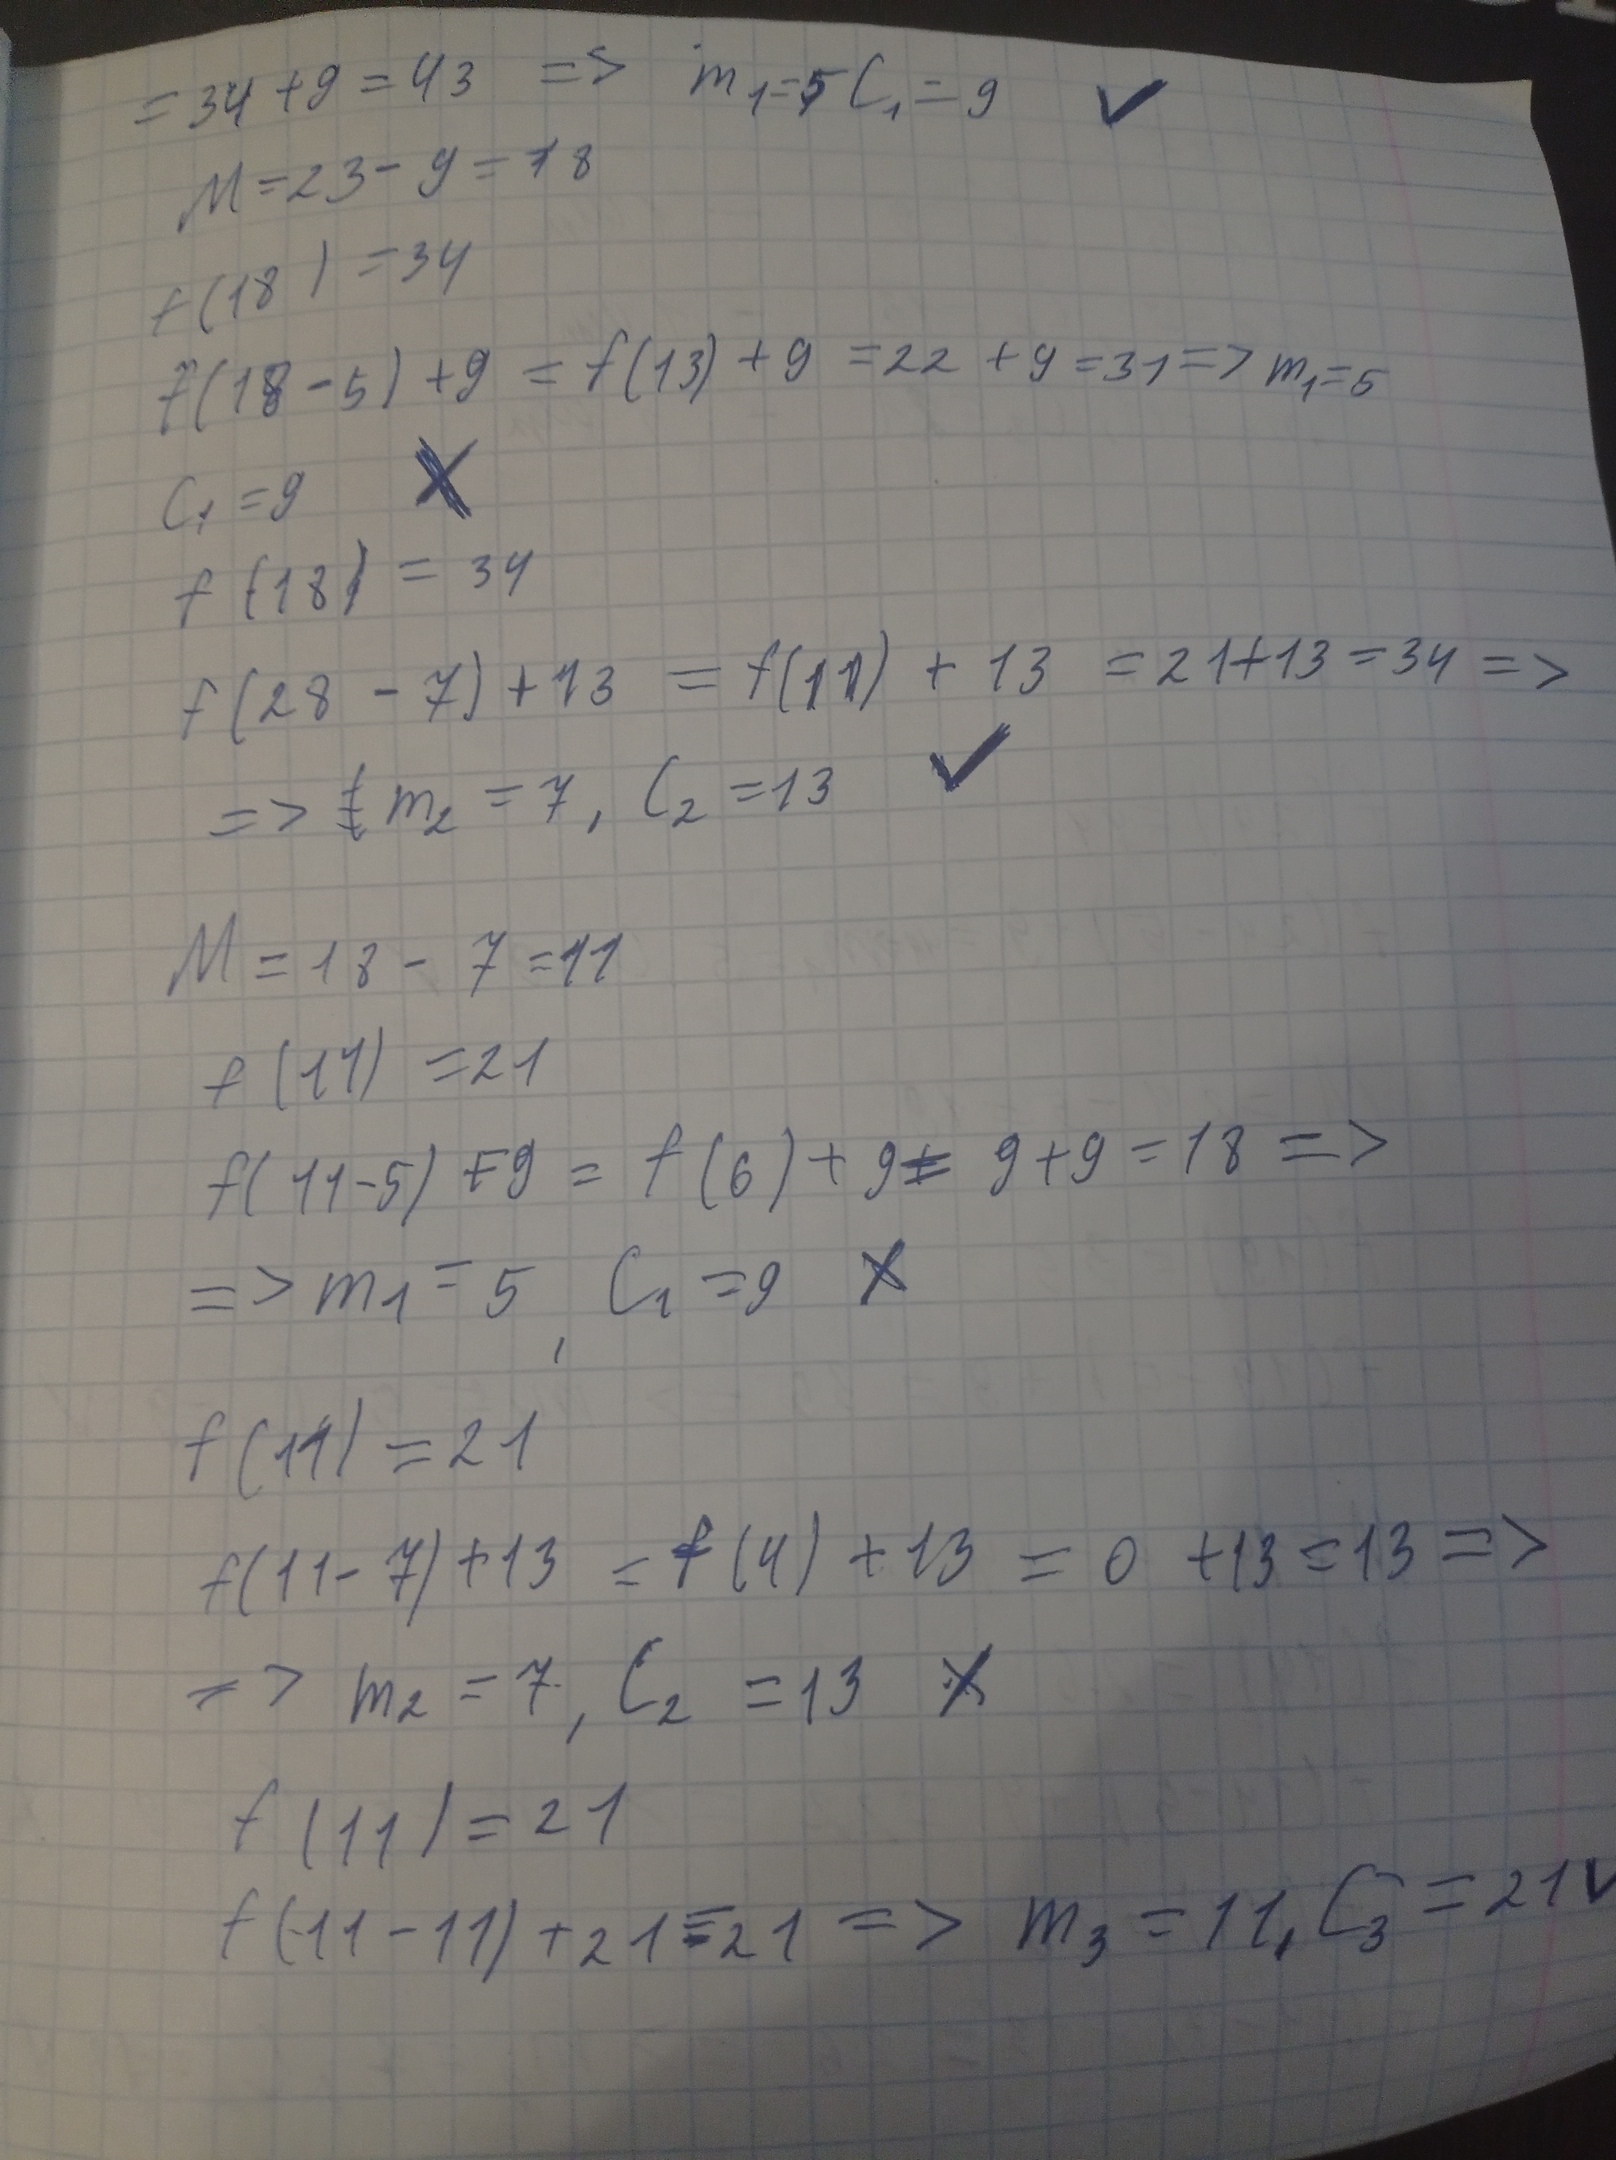 = 34 + 9 = 43 => m₁=5 C₁ = 9 ✓
M = 23 - 9 = 18
f(18) = 34
f(18 - 5) + 9 = f(13) + 9 = 22 + 9 = 31 => m₁=5
C₁ = 9 X
f(18) = 34
f(28 - 7) + 13 = f(11) + 13 = 21+13 = 34 =>
=> m₂ = 7, C₂ = 13 ✓
M = 18 - 7 = 11
f(11) = 21
f(11-5) + 9 = f(6) + 9 = 9+9 = 18 =>
=> m₁ = 5, C₁ = 9 X
f(11) = 21
f(11-7) + 13 = f(4) + 13 = 0 + 13 = 13 =>
=> m₂ = 7, C₂ = 13 X
f(11) = 21
f(11 - 11) + 21 = 21 => m₃ = 11, C₃ = 21 ✓